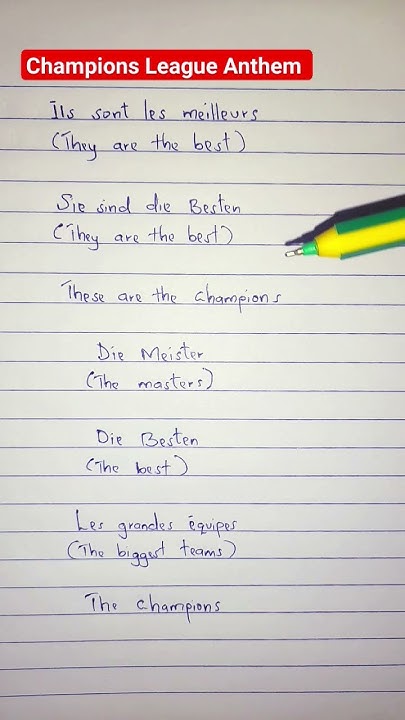 Champions League Anthem
Ils sont les meilleurs
(They are the best)
Sie sind die Besten
(They are the best)
These are the champions
Die Meister
(The masters)
Die Besten
(The best)
Les grandes équipes
(The biggest teams)
The champions